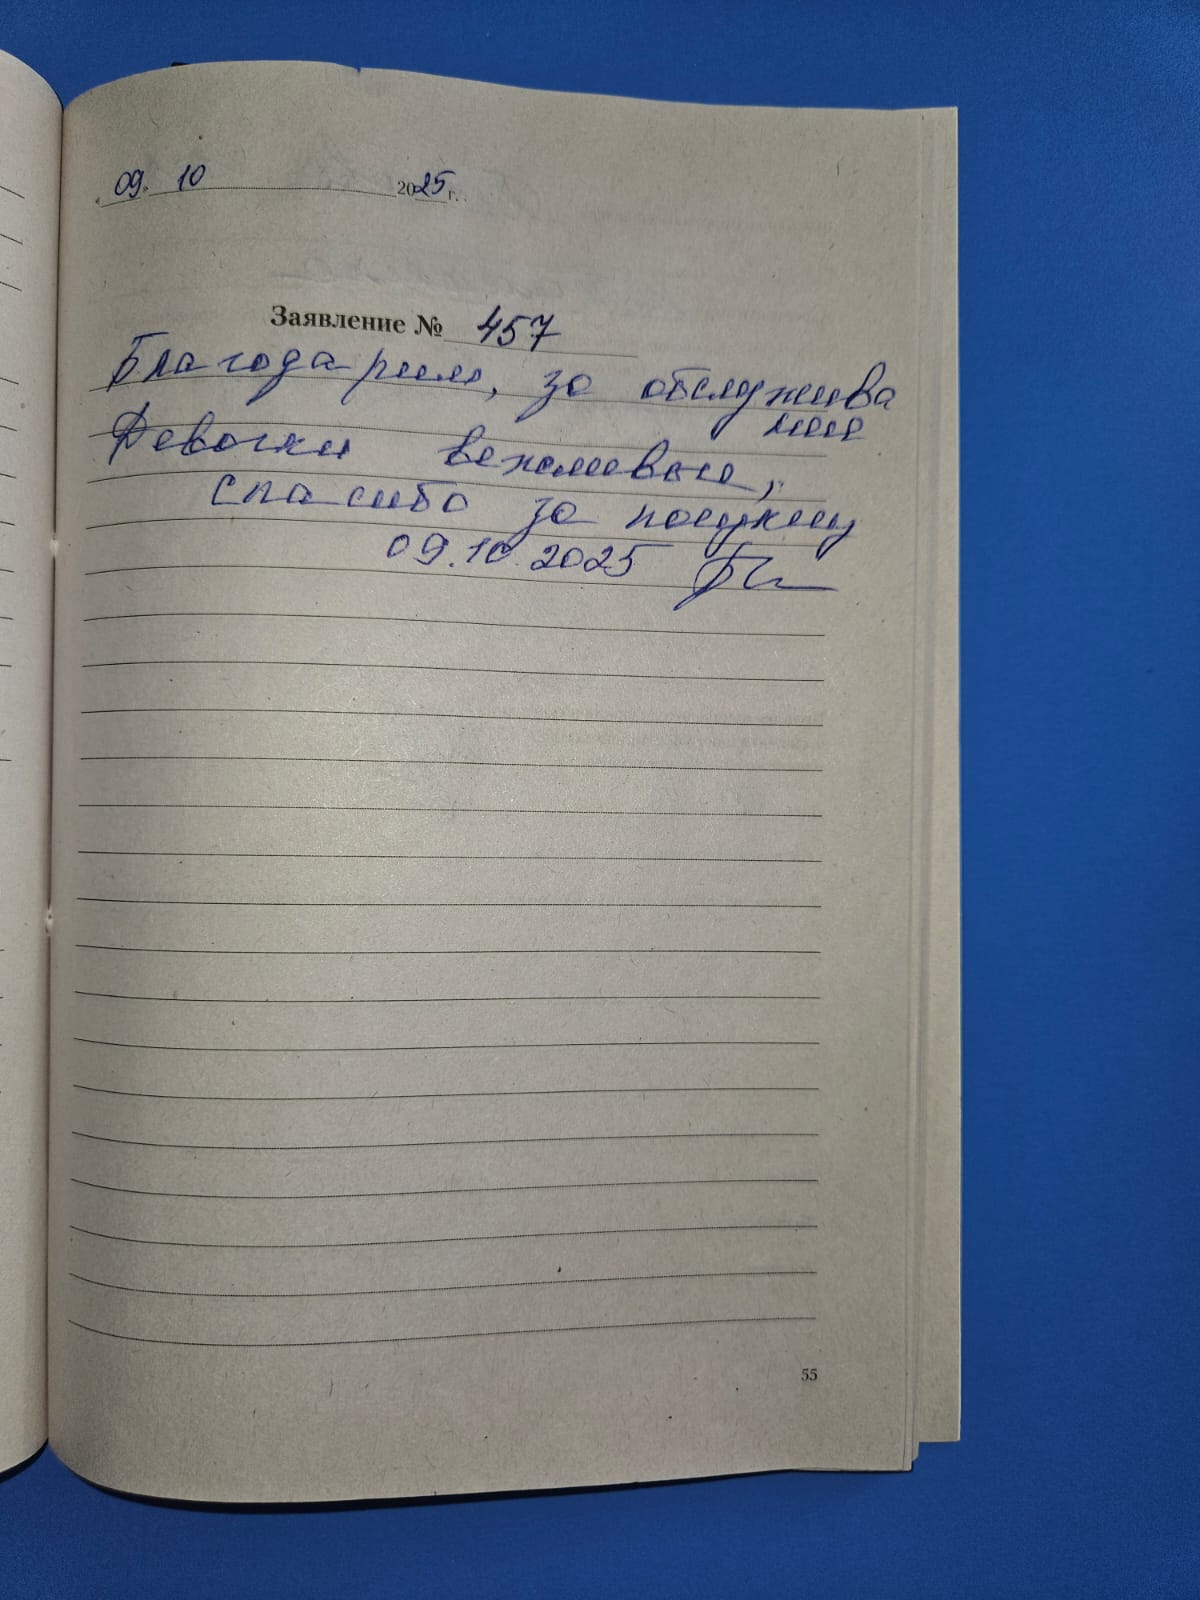 «09» 10 2025 г.
Заявление № 457
Благодарим, за обслужива
ние
Девочки вежливые,
спасибо за покупку
09.10.2025
55